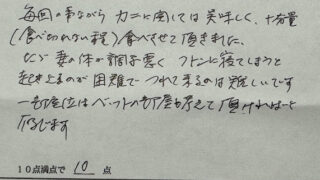 毎回の事ながら カニに関しては 美味しく、十分量
(食べ切れない程)食べさせて頂きました。
ただ 妻の体が調子悪く フトンに寝てしまうと
起き上るのが困難で つれて来るのは難しいです
一部屋位はベットの部屋も考えて頂ければと
存じます
10点満点で 10 点